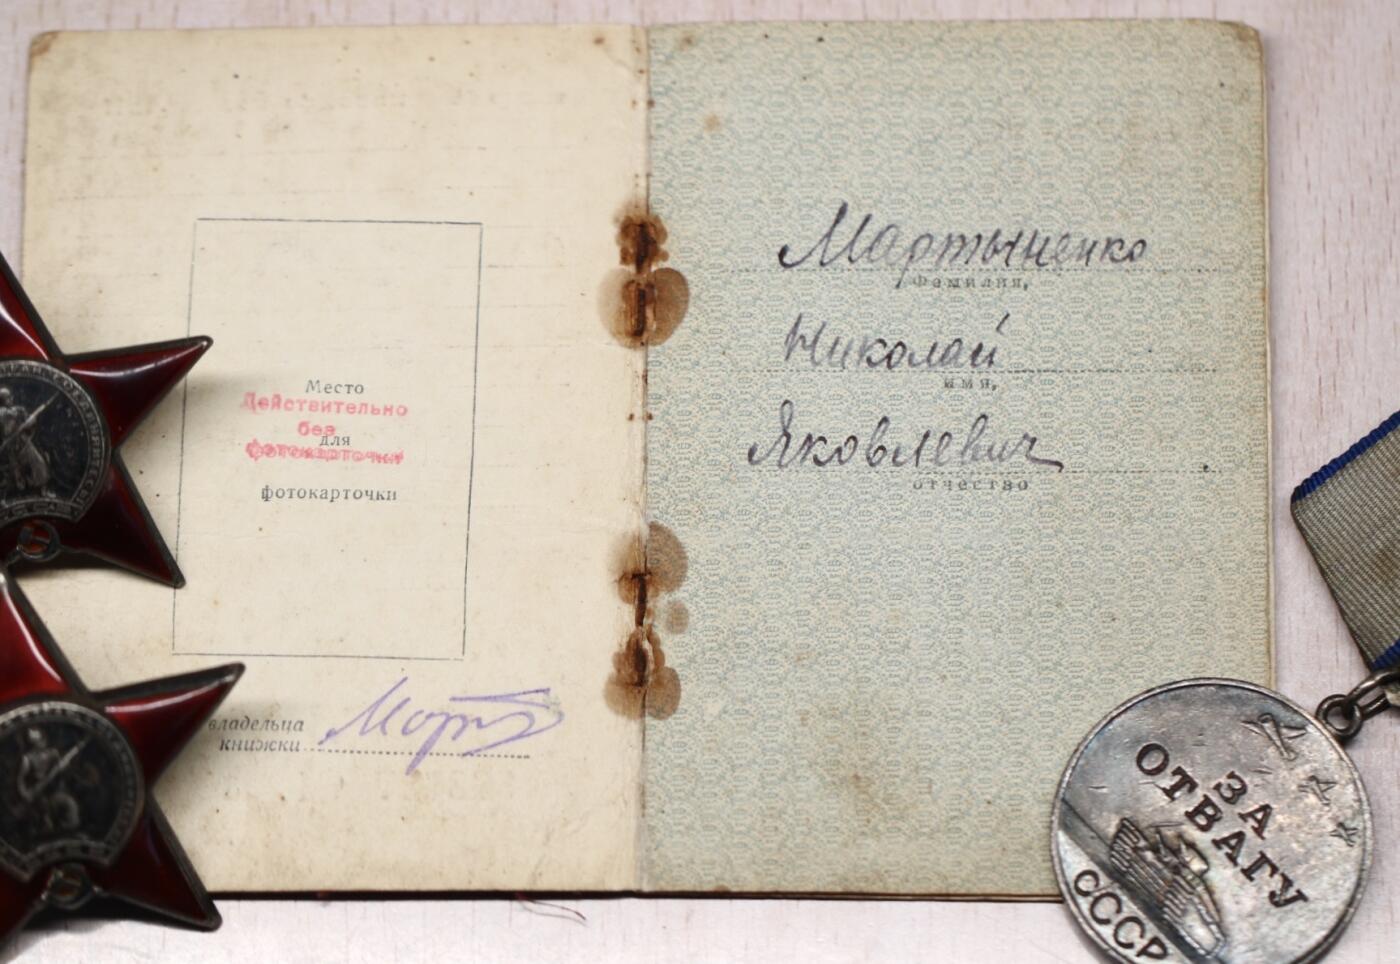 Место
Действительно
без
для
фотокарточки
фотокарточки
владельца
книжки
Март
Мартыненко
Фамилия,
Николай
имя,
Яковлевич
отчество
ЗА
ОТВАГУ
СССР